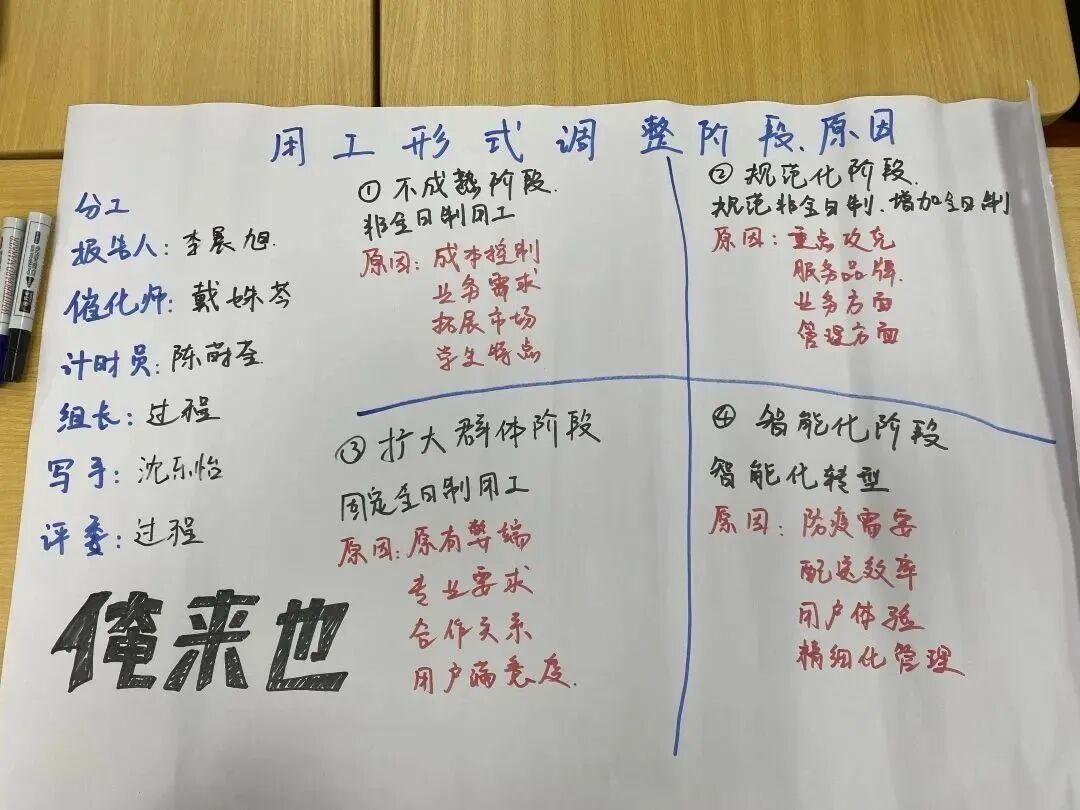 用工形式调整阶段、原因
分工
报告人：李晨旭
催化师：戴姝芩
计时员：陈蔚荃
组长：过程
写手：沈乐怡
评委：过程
俺来也
① 不成熟阶段.
非全日制用工
原因：成本控制
业务需求
拓展市场
学生特点
② 规范化阶段.
规范非全日制、增加全日制
原因：重点攻克
服务品牌.
业务方面
管理方面
③ 扩大群体阶段
固定全日制用工
原因：原有弊端
专业要求
合作关系
用户满意度.
④ 智能化阶段
智能化转型
原因：防疫需要
配送效率
用户体验
精细化管理